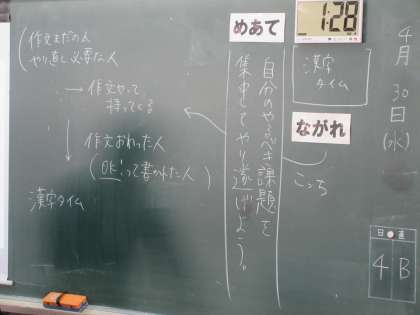 4月30日(水)
1:28
漢字
タイム
ながれ
こっち
日直
4B
めあて
自分のやるべき課題を
集中してやり遂げよう。
(作文まだの人
やり直し必要な人
→作文やって
持ってくる
作文おわった人
(OK!って書かれた人)
漢字タイム